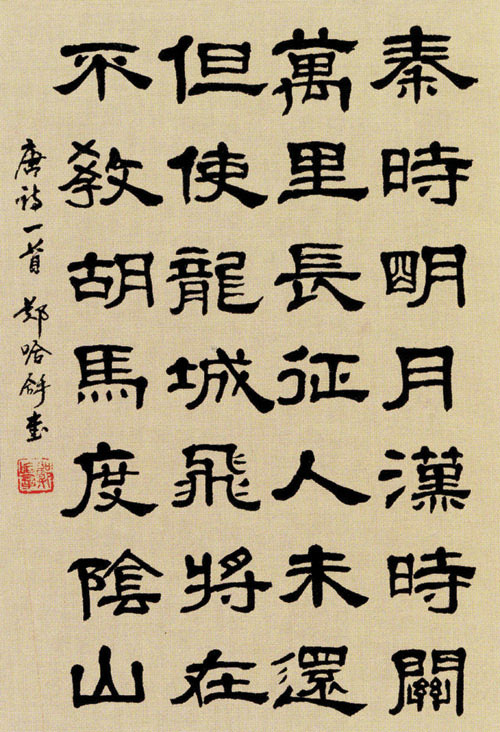 秦時明月漢時關
萬里長征人未還
但使龍城飛將在
不教胡馬度陰山
唐詩一首 鄭哈舒書